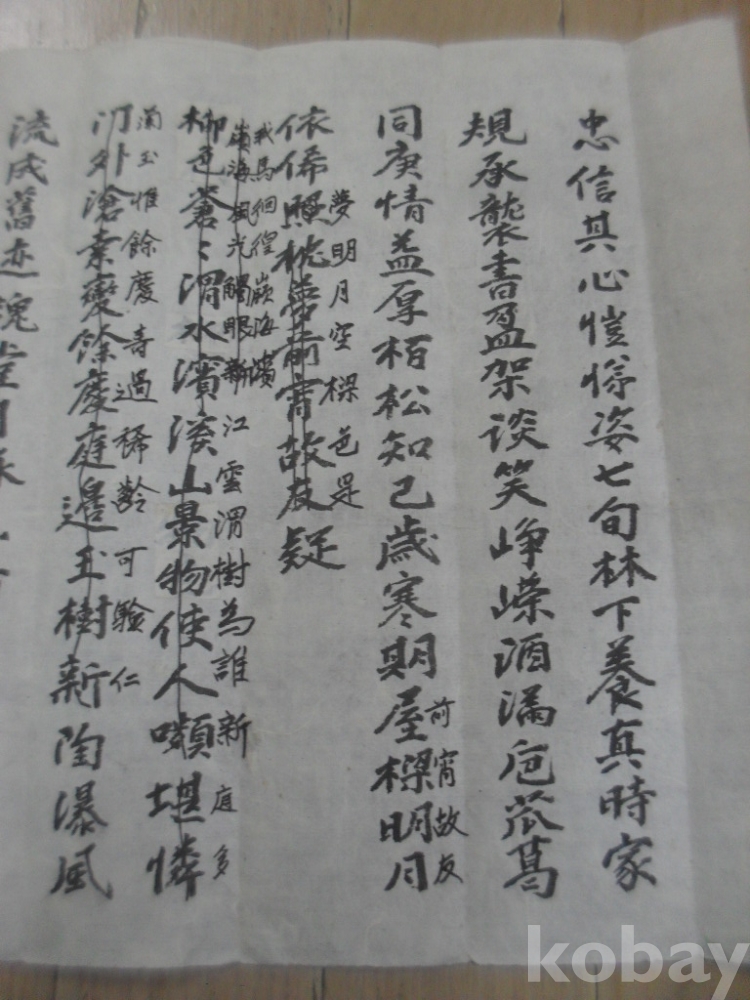 忠信其心愷悌姿七旬林下養真時家
規承襲書盈架談笑崢嶸酒滿卮苽葛
同庚情益厚栢松知己歲寒期屋樑明月
前宵故友
夢明月空樑色是
依俙照枕當前宵故友疑
我馬徊徨嶺海濱
嶺海風光觸眼新 江雲渭樹為誰新 庭多
柳色蒼〻渭水濱淡山景物使人嚬堪憐
蘭玉惟餘慶 壽過稀齡可驗仁
門外滄桑變餘慶庭邊玉樹新陶瀑風
流成舊迹
kobay